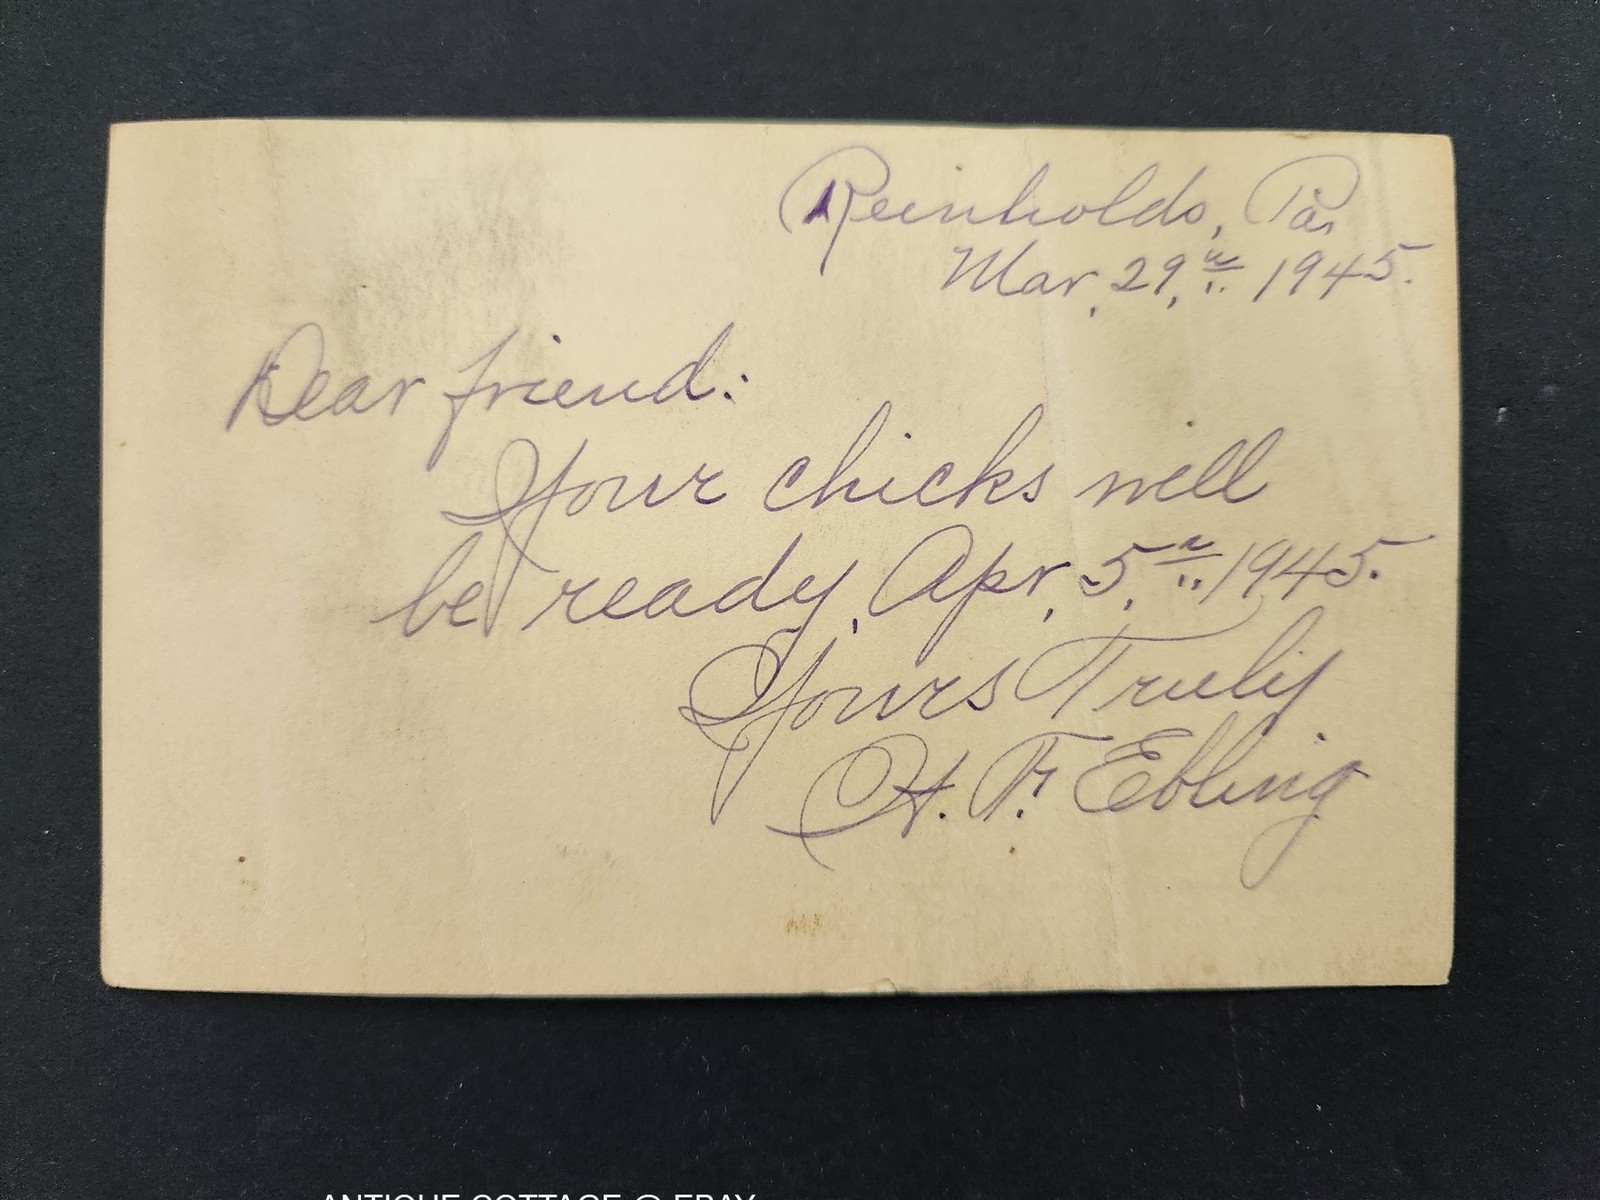 Reinholds, Pa,
Mar, 29, 1945.
Dear friend:
Your chicks will
be ready, Apr, 5, 1945.
Yours Truly
H. F. Ebling
ANTIQUE COTTAGE @ EBAY